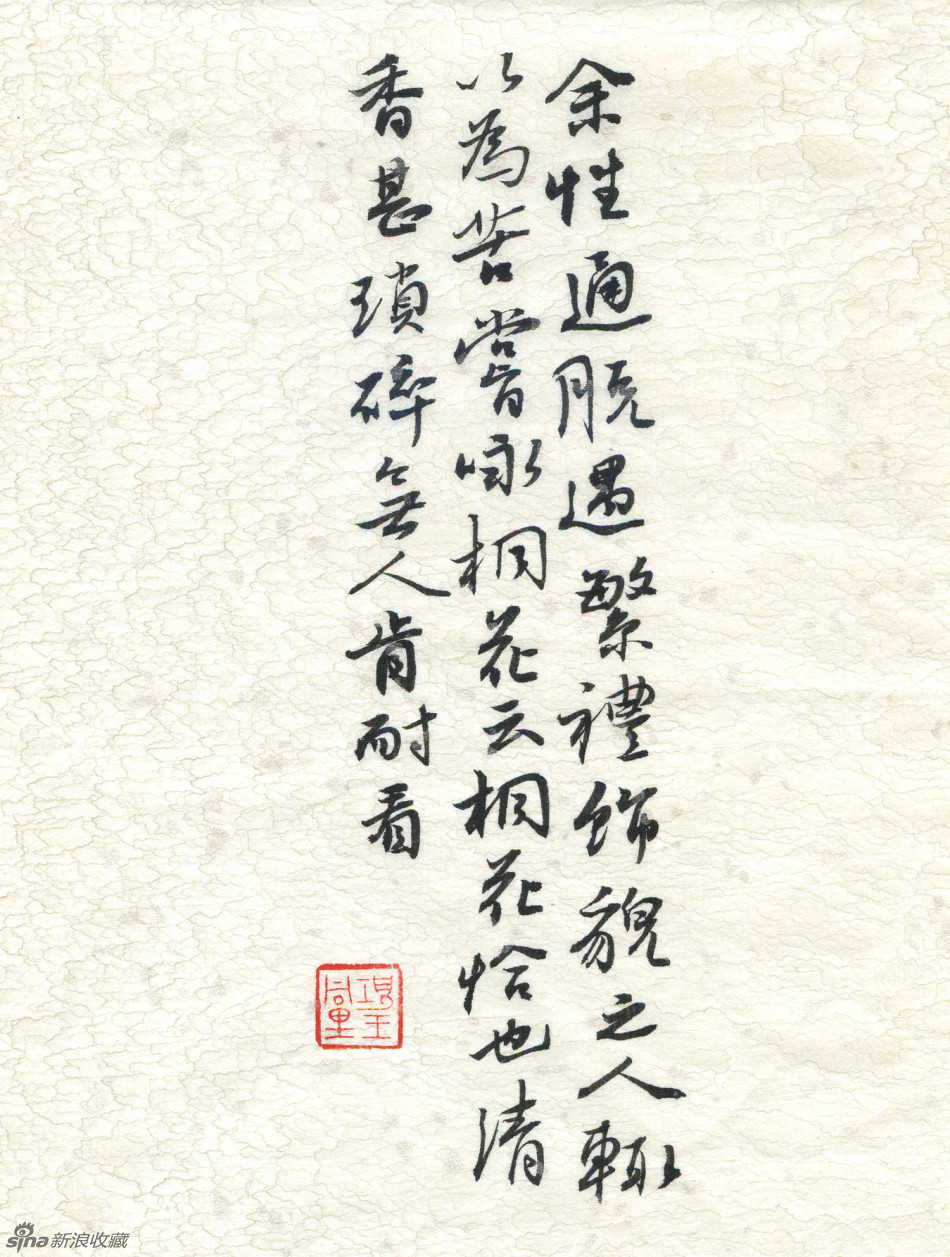 余性通脱遇繁禮飾貌之人輒
以為苦嘗咏桐花云桐花恰也清
香甚瑣碎無人肯耐看
sina新浪收藏